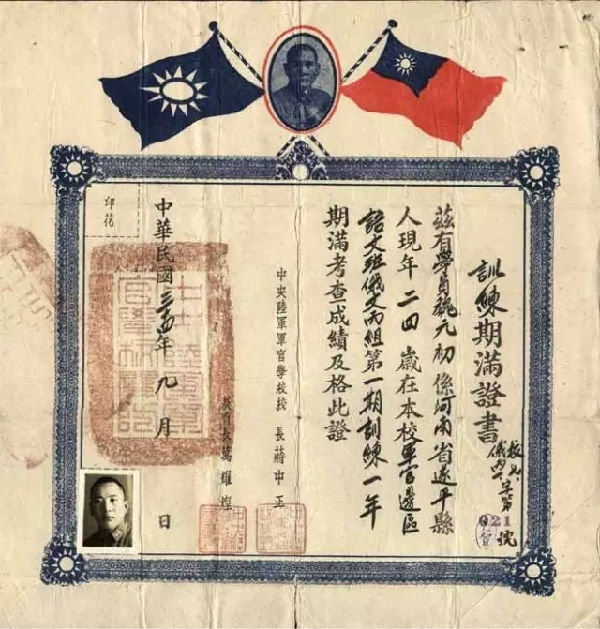 訓練期滿證書
儀丙字第021號
茲有學員魏元初係河南省遂平縣
人現年二四歲在本校軍官邊區
語文班俄文丙組第一期訓練一年
期滿考查成績及格此證
中央陸軍軍官學校校長蔣中正
教育長萬耀煌
中華民國三十四年九月 日
印花